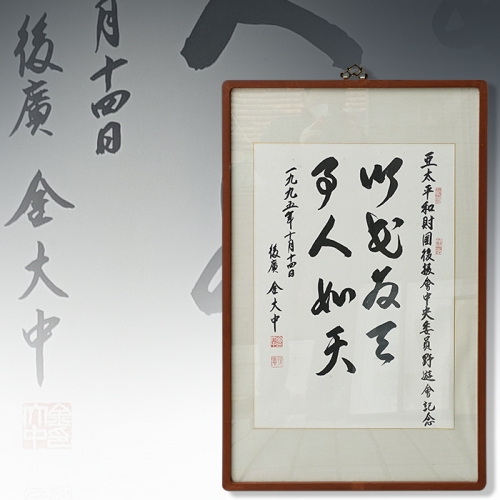 亞太平和財團後援會中央委員野遊會記念
以民為天
事人如天
一九九五年十月十四日
後廣 金大中
月十四日
後廣 金大中